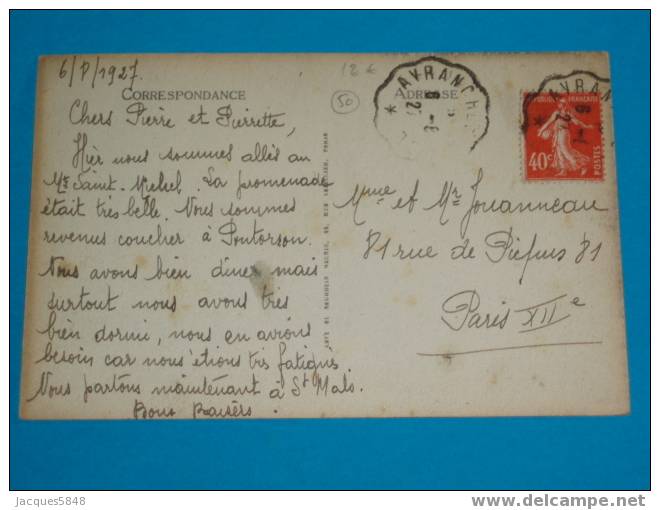 6/8/1927.
12 €
CORRESPONDANCE
ADRESSE
50
AVRANCHES
AVRANCH
RÉPUBLIQUE FRANÇAISE
40c
POSTES
Chers Pierre et Pierrette,
Hier nous sommes allés au
Mt Saint-Michel. La promenade
était très belle. Nous sommes
revenus coucher à Pontorson.
Nous avons bien diner mais
surtout nous avons très
bien dormi, nous en avions
besoin car nous étions très fatigués.
Nous partons maintenant à St Malo.
Bons Baisers.
Mme et Mr Jouanneau
81 rue de Picpus 81
Paris XIIe
Jacques5848
www.delcampe.net